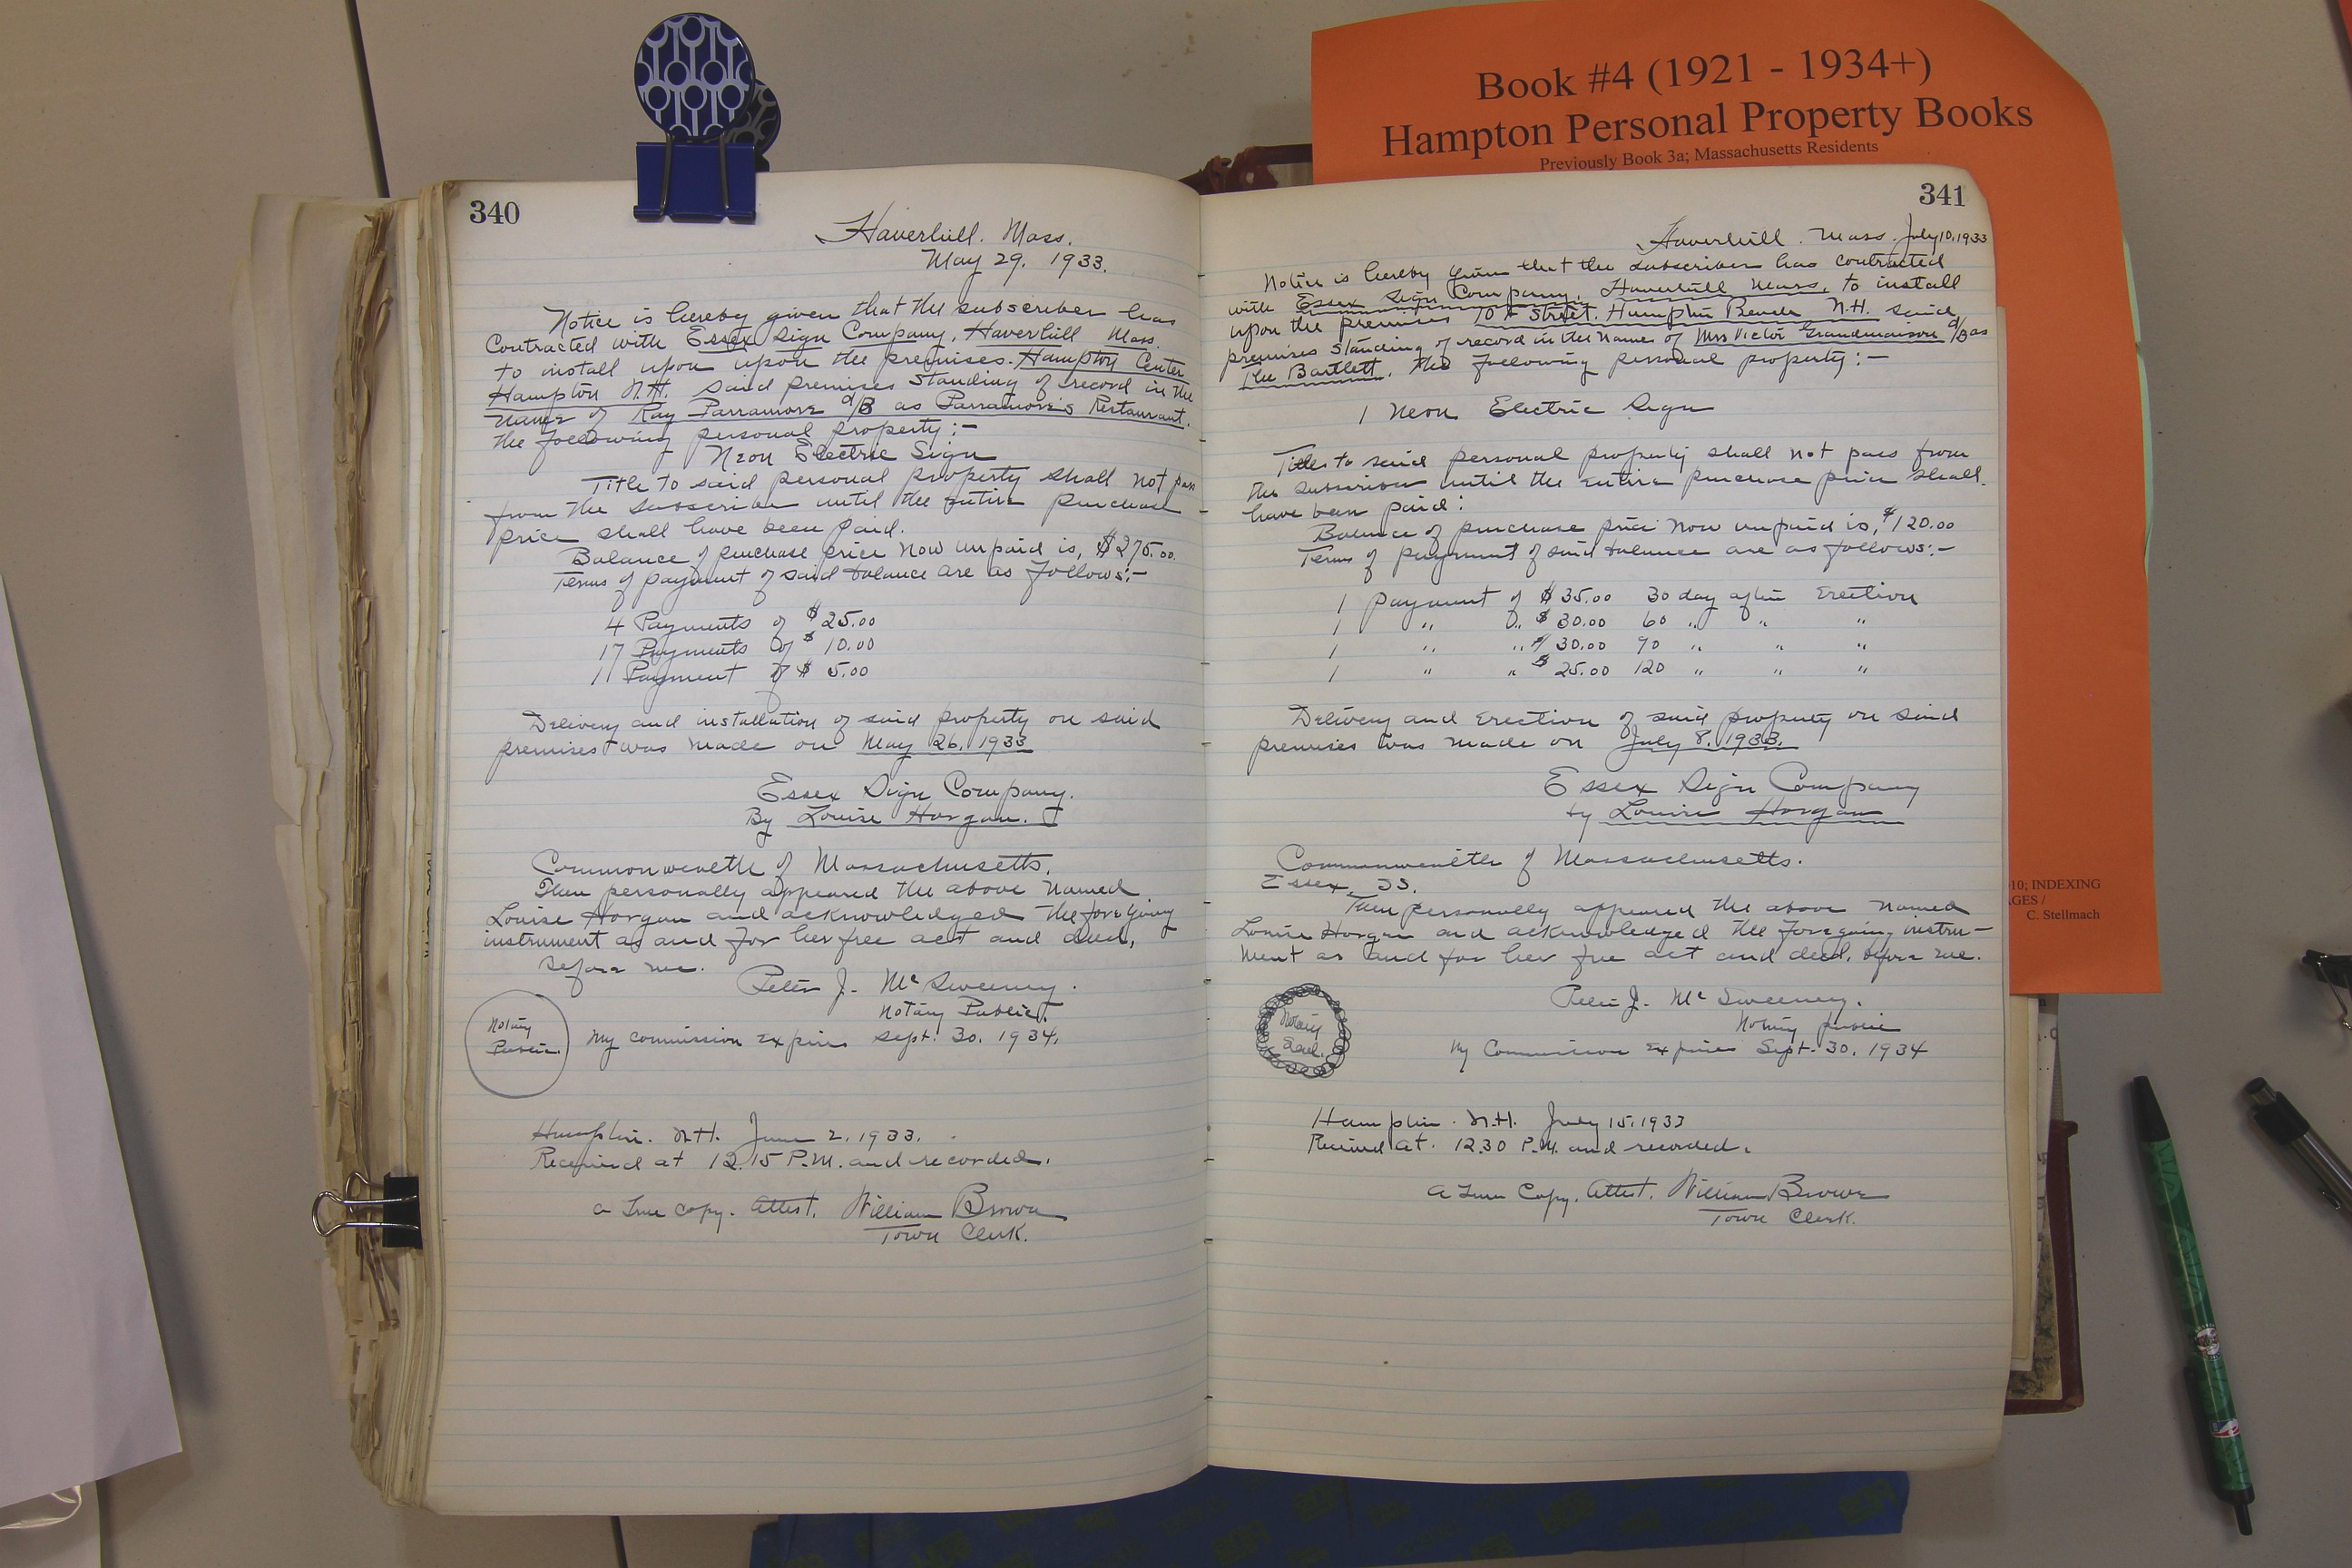 Book #4 (1921 - 1934+)
Hampton Personal Property Books
Previously Book 3a; Massachusetts Residents
10; INDEXING
AGES /
C. Stellmach
340
Haverhill. Mass.
May 29, 1933.
Notice is hereby given that the subscriber has
contracted with Essex Sign Company, Haverhill Mass.
to install upon upon the premises. Hampton Center
Hampton N.H. said premises standing of record in the
name of Ray Parramore d/B as Parramore's Restaurant.
the following personal property:-
Neon Electric Sign
Title to said personal property shall not pass
from the subscriber until the entire purchase
price shall have been paid.
Balance of purchase price now unpaid is, $275.00.
Terms of payment of said balance are as follows:-
4 Payments of $25.00
17 Payments of $10.00
1 Payment of $5.00
Delivery and installation of said property on said
premises was made on May 26, 1933
Essex Sign Company.
By Louise Horgan.
Commonwealth of Massachusetts.
Then personally appeared the above named
Louise Horgan and acknowledged the foregoing
instrument as and for her free act and deed,
before me.
Peter J. McSweeney.
Notary Public.
Notary
Public.
My commission expires Sept. 30, 1934.
Hampton. N.H. June 2, 1933.
Received at 12.15 P.M. and recorded.
a True copy. Attest. William Brown
Town Clerk.
341
Haverhill. Mass. July 10, 1933
Notice is hereby given that the subscriber has contracted
with Essex Sign Company, Haverhill Mass, to install
upon the premises 10 A Street, Hampton Beach N.H. said
premises standing of record in the name of Mrs Victor Grandmaison d/B as
The Bartlett, the following personal property:-
1 Neon Electric Sign
Title to said personal property shall not pass from
the subscriber until the entire purchase price shall
have been paid:
Balance of purchase price now unpaid is, $120.00
Terms of payment of said balance are as follows:-
1 payment of $35.00 30 day after Erection
1 " " $30.00 60 " " "
1 " " $30.00 90 " " "
1 " " $25.00 120 " " "
Delivery and Erection of said property on said
premises was made on July 8, 1933.
Essex Sign Company
by Louise Horgan
Commonwealth of Massachusetts.
Essex SS.
Then personally appeared the above named
Louise Horgan and acknowledged the foregoing instru-
ment as and for her free act and deed, before me.
Peter J. McSweeney.
Notary public
Notary
Seal.
My Commission expires Sept. 30, 1934
Hampton. N.H. July 15, 1933
Received at. 12.30 P.M. and recorded.
a True Copy. Attest. William Brown
Town Clerk.